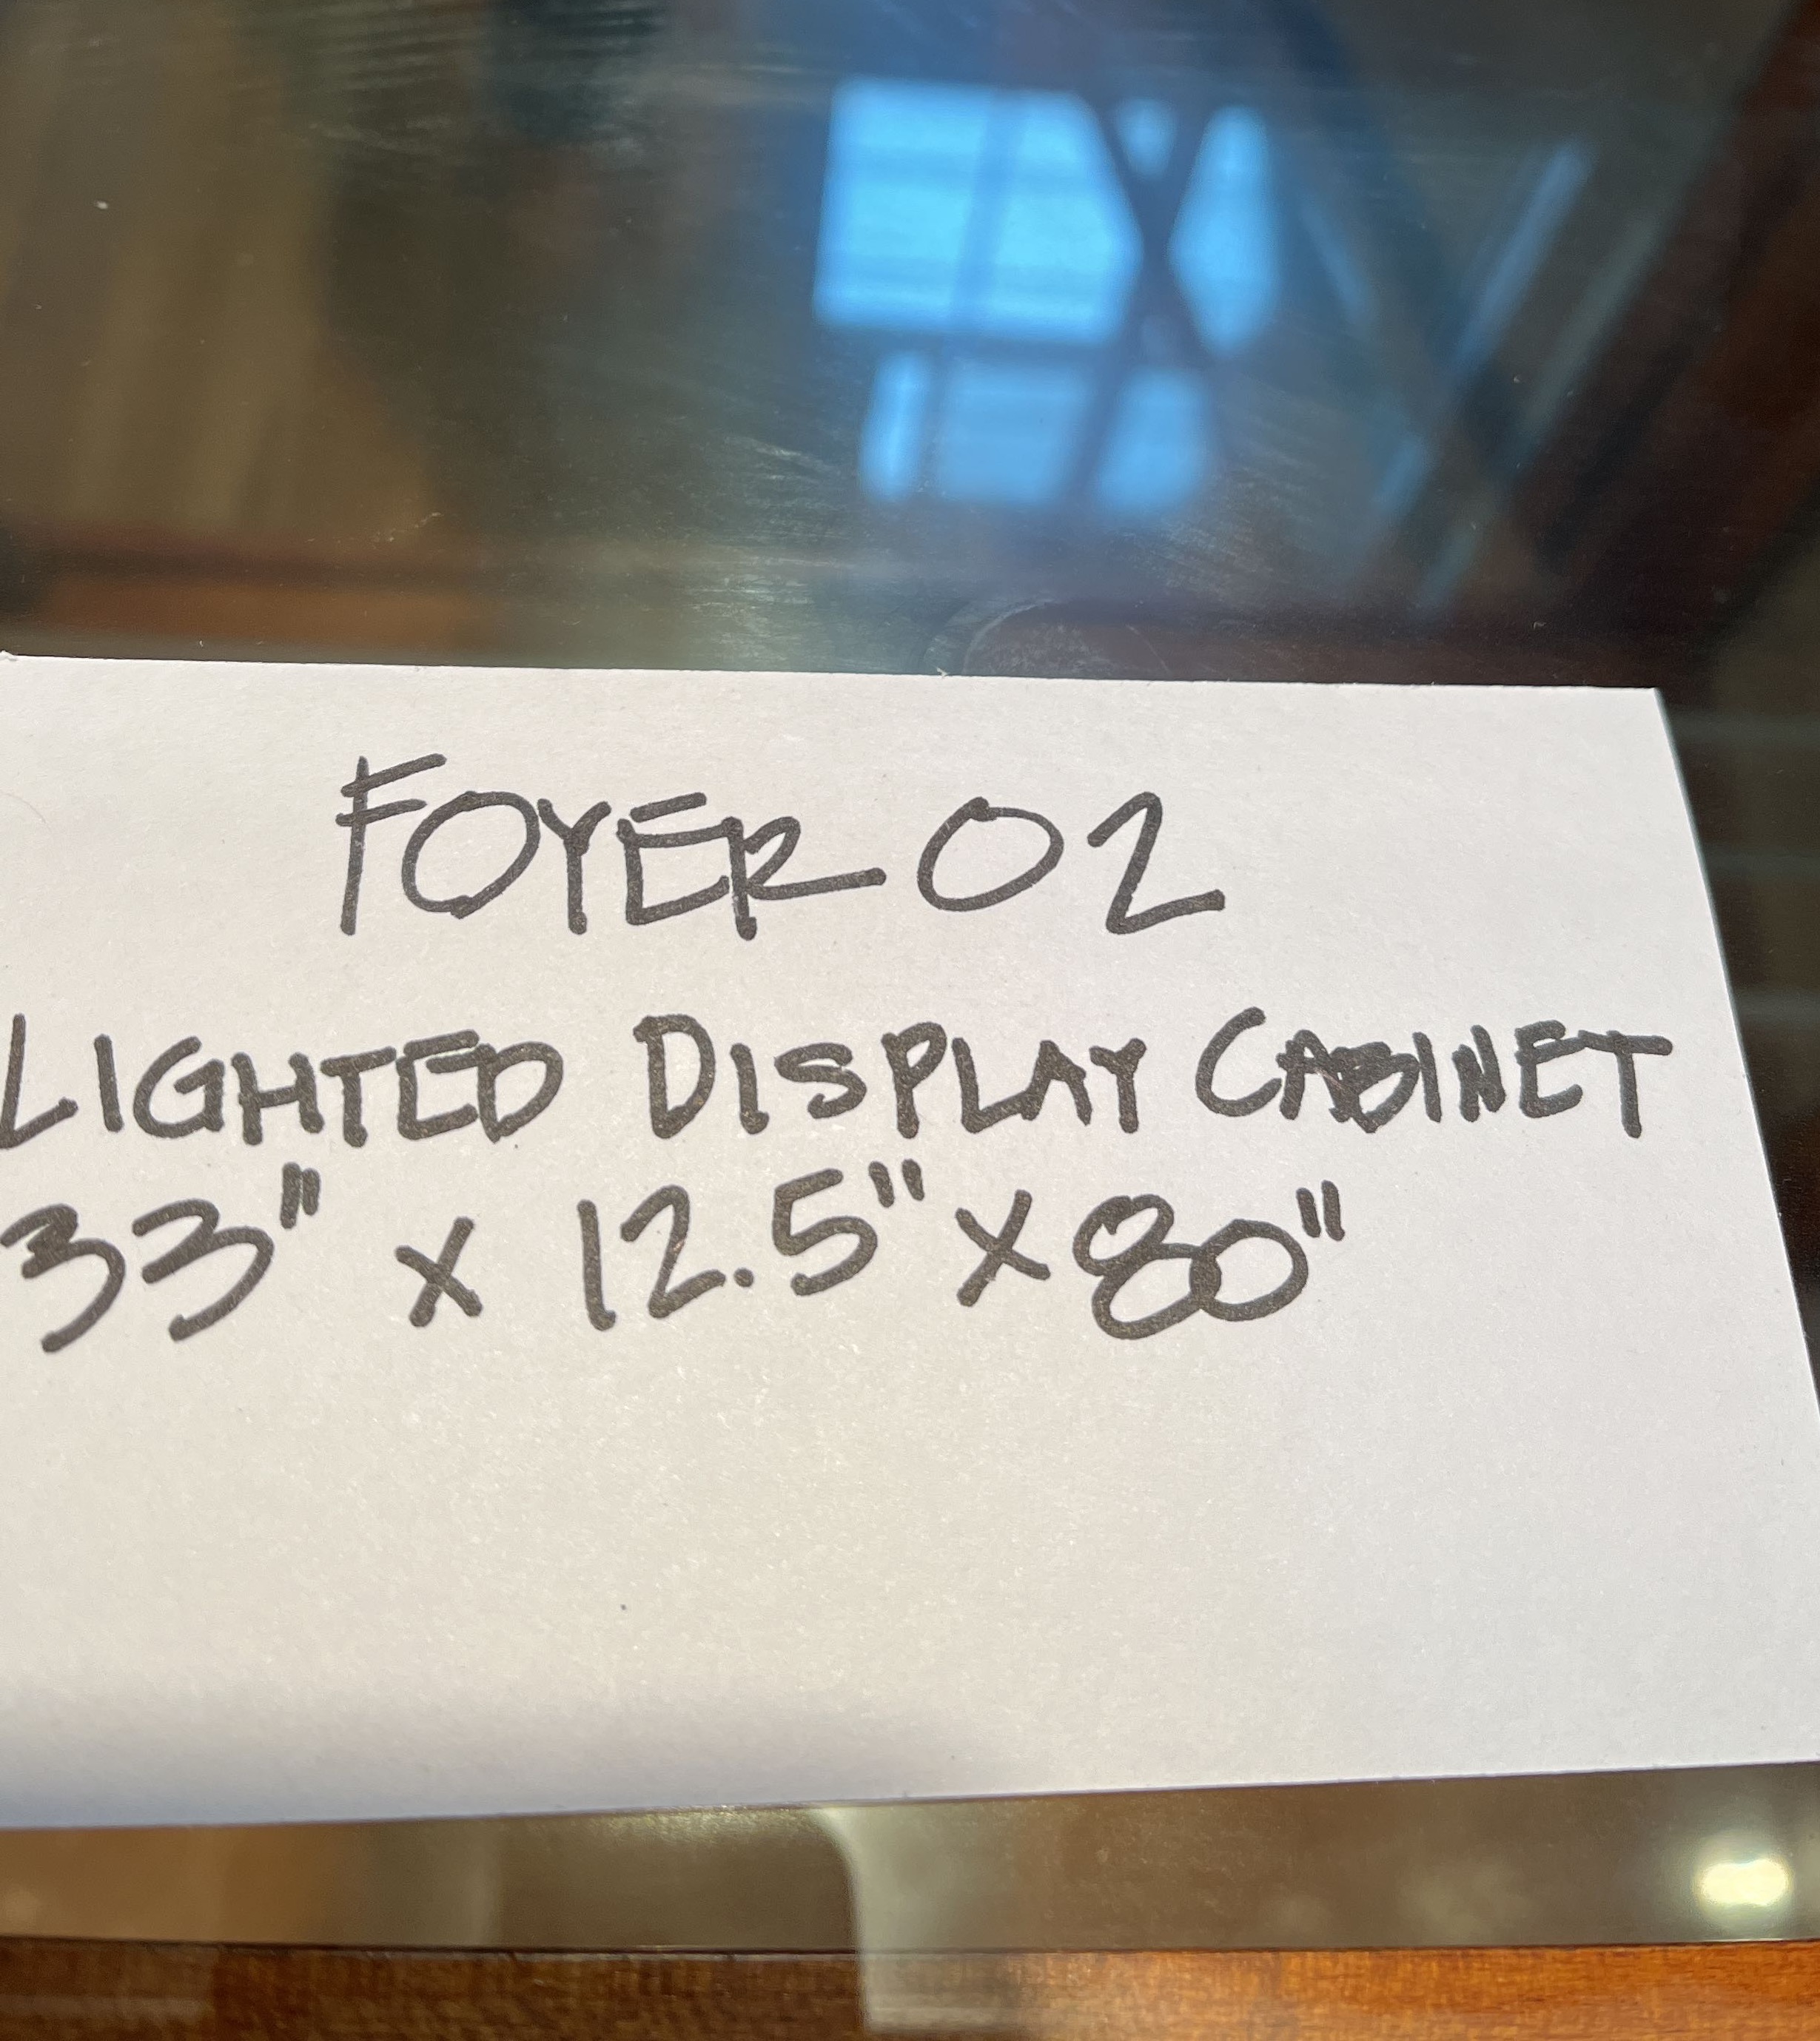 FOYER 02
LIGHTED DISPLAY CABINET
33" x 12.5" x 80"